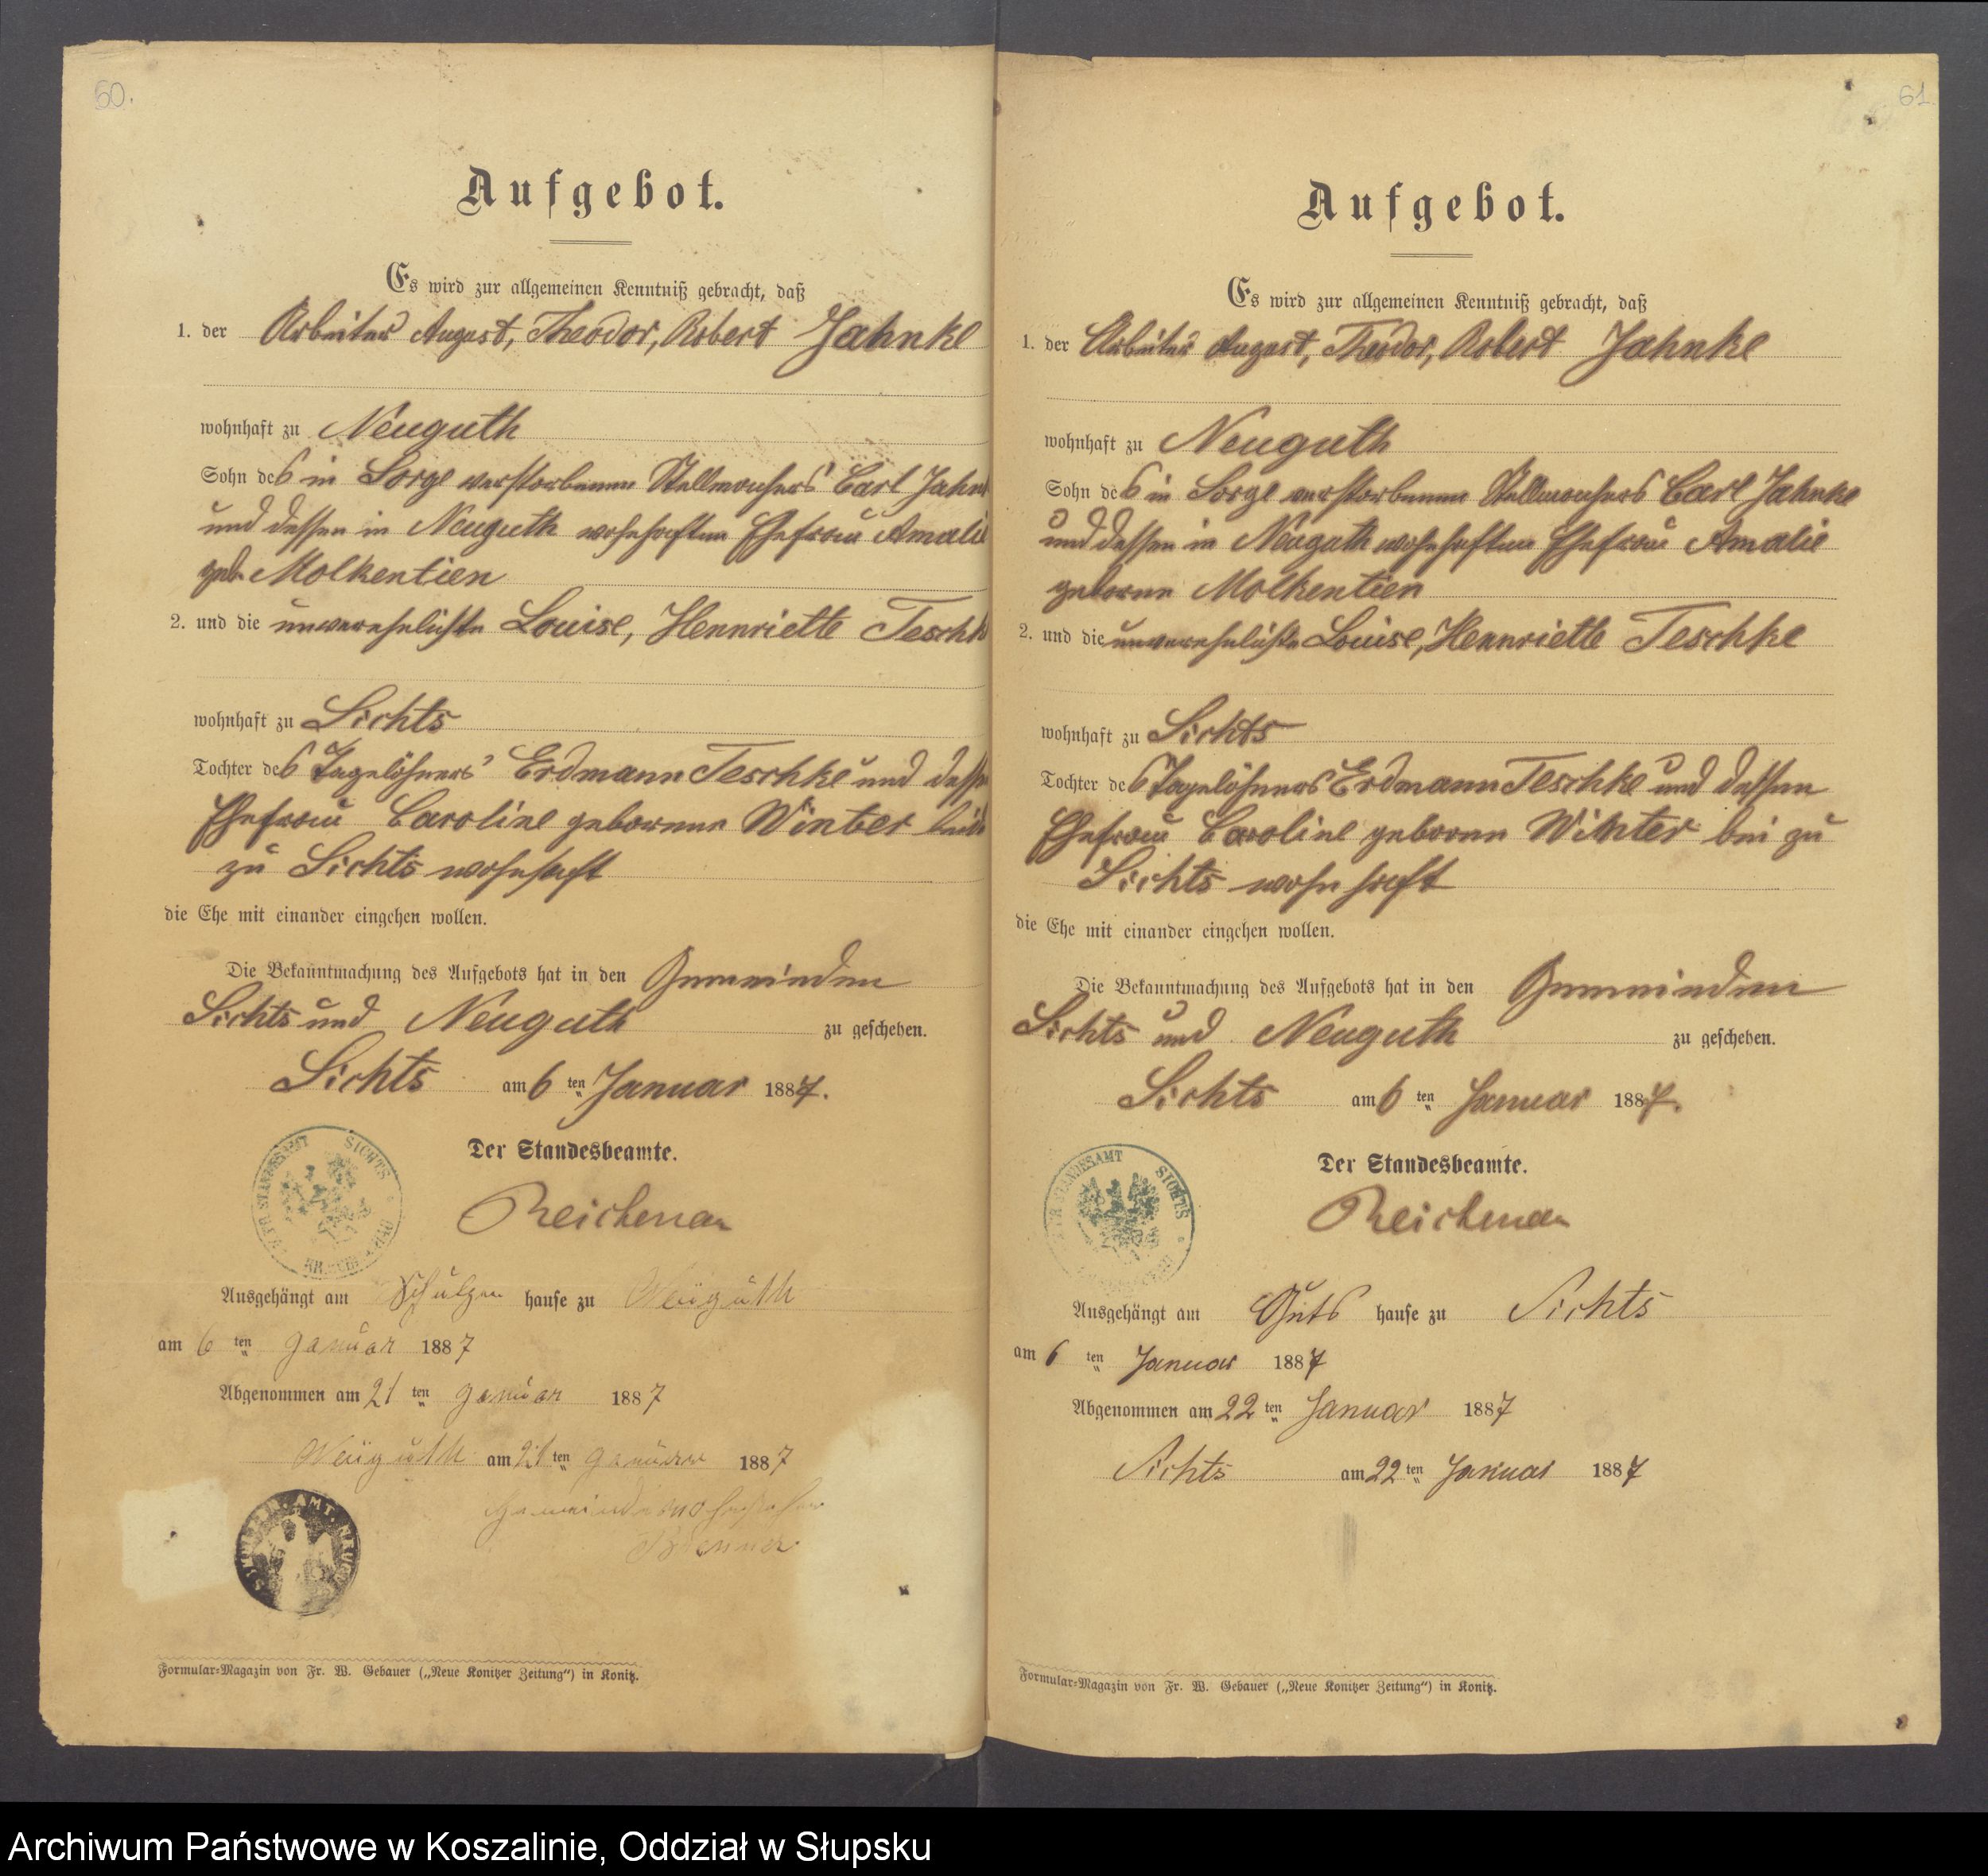 60.
Aufgebot.
Es wird zur allgemeinen Kenntniß gebracht, daß
1. der Arbeiter August, Theodor, Robert Jahnke
wohnhaft zu Neuguth
Sohn des in Sorge verstorbenen Stellmachers Carl Jahn
und dessen in Neuguth wohnhaften Ehefrau Amalie
geb. Molkentien
2. und die unverehelichte Louise, Hennriette Teschk
wohnhaft zu Sichts
Tochter des Tagelöhners Erdmann Teschke und dessen
Ehefrau Caroline geborenen Winter beide
zu Sichts wohnhaft
die Ehe mit einander eingehen wollen.
Die Bekanntmachung des Aufgebots hat in den Gemeinden
Sichts und Neuguth zu geschehen.
Sichts am 6 ten Januar 1887.
Der Standesbeamte.
STANDESAMT SICHTS
Reichenau
Ausgehängt am Schulzen hause zu Neuguth
am 6 ten Januar 1887
Abgenommen am 21 ten Januar 1887
Neuguth am 21 ten Januar 1887
Gemeindevorsteher
AMT.
Formular-Magazin von Fr. W. Gebauer („Neue Konitzer Zeitung“) in Konitz.
61
Aufgebot.
Es wird zur allgemeinen Kenntniß gebracht, daß
1. der Arbeiter August, Theodor, Robert Jahnke
wohnhaft zu Neuguth
Sohn des in Sorge verstorbenen Stellmachers Carl Jahnke
und dessen in Neuguth wohnhaften Ehefrau Amalie
geborne Molkentien
2. und die unverehelichte Louise, Hennriette Teschke
wohnhaft zu Sichts
Tochter des Tagelöhners Erdmann Teschke und dessen
Ehefrau Caroline geborne Winter bei zu
Sichts wohnhaft
die Ehe mit einander eingehen wollen.
Die Bekanntmachung des Aufgebots hat in den Gemeinden
Sichts und Neuguth zu geschehen.
Sichts am 6 ten Januar 1887.
Der Standesbeamte.
STANDESAMT SICHTS
Reichenau
Ausgehängt am Guts hause zu Sichts
am 6 ten Januar 1887
Abgenommen am 22 ten Januar 1887
Sichts am 22 ten Januar 1887
Formular-Magazin von Fr. W. Gebauer („Neue Konitzer Zeitung“) in Konitz.
Archiwum Państwowe w Koszalinie, Oddział w Słupsku